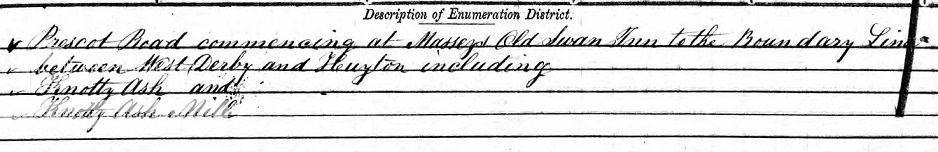 Description of Enumeration District.
Prescot Road commencing at Masseys Old Swan Inn to the Boundary Line
between West Derby and Huyton including
Knotty Ash and
Knotty Ash Mill